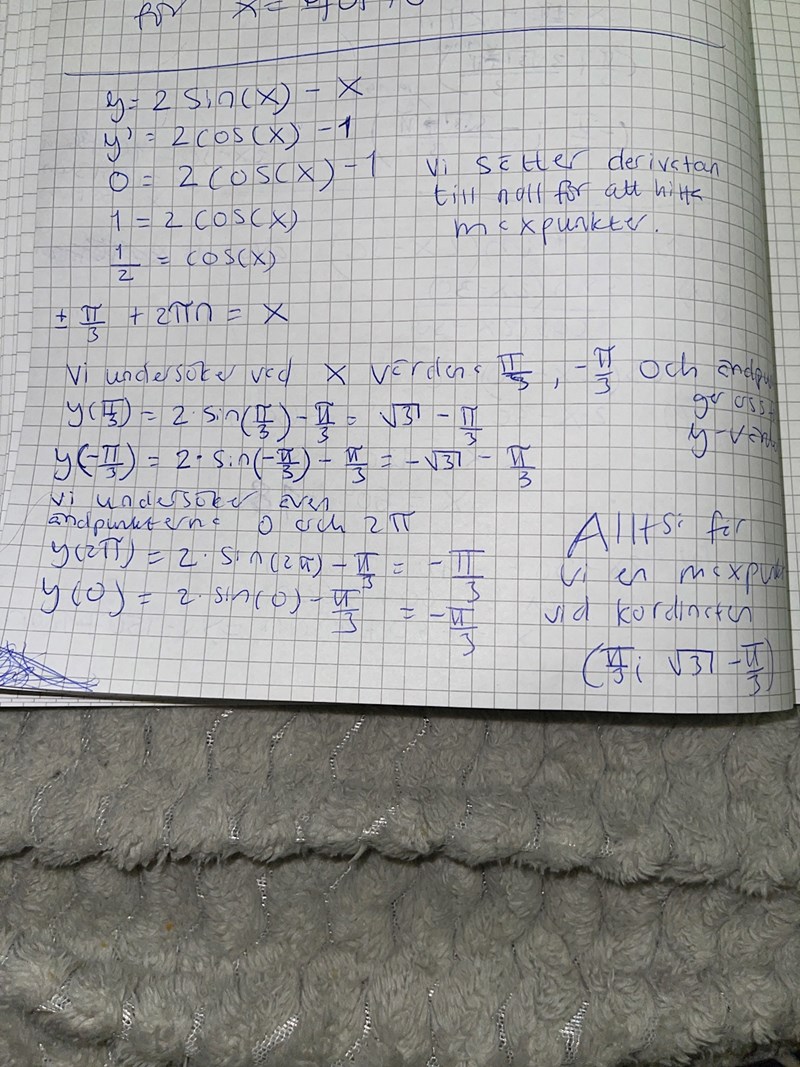 för x=
y = 2 sin(x) - x
y' = 2 cos(x) - 1
0 = 2 cos(x) - 1
1 = 2 cos(x)
1/2 = cos(x)
± π/3 + 2πn = x
Vi sätter derivatan
till noll för att hitta
maxpunkter.
Vi undersöker vad x värdena π/3, -π/3 och ändpu
ger oss
y-
y(π/3) = 2 · sin(π/3) - π/3 = √3 - π/3
y(-π/3) = 2 · sin(-π/3) - π/3 = -√3 - π/3
Vi undersöker även
ändpunkterna 0 och 2π
y(2π) = 2 · sin(2π) - π/3 = - π/3
y(0) = 2 · sin(0) - π/3 = - π/3
Alltså får
vi en maxpun
vid kordinaten
(π/3; √3 - π/3)